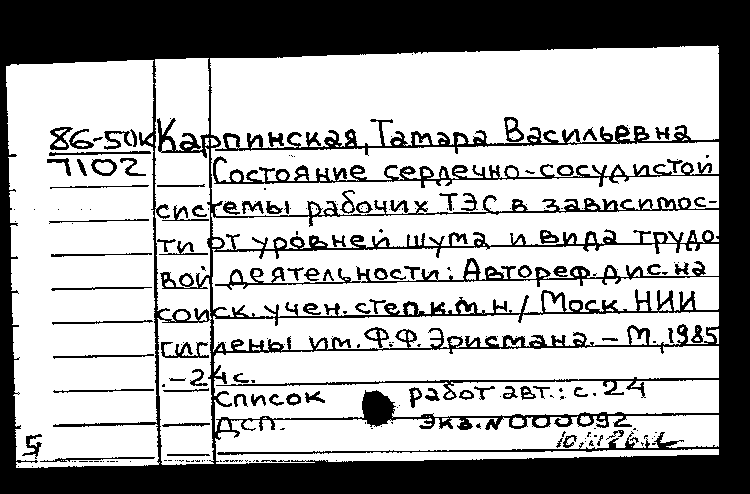 86-50к Карпинская, Тамара Васильевна
7102 Состояние сердечно-сосудистой
системы рабочих ТЭС в зависимос-
ти от уровней шума и вида трудо-
вой деятельности: Автореф. дис. на
соиск. учен. степ. к.м.н. / Моск. НИИ
гигиены им. Ф.Ф. Эрисмана. – М., 1985
. – 24 с.
Список работ авт.: с. 24
Дсп. Экз. N 000092
5